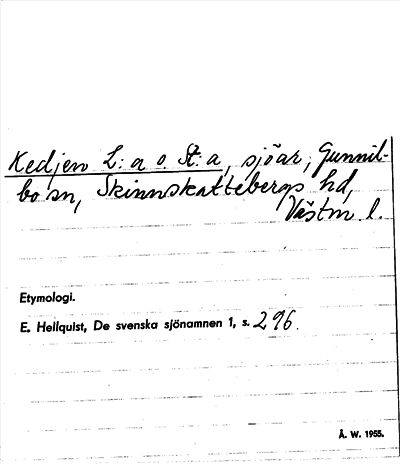 Kedjen L:a o. St:a, sjöar, Gunnil-
bo sn, Skinnskattebergs hd,
Västm. l.
Etymologi.
E. Hellquist, De svenska sjönamnen 1, s. 296.
Å. W. 1955.